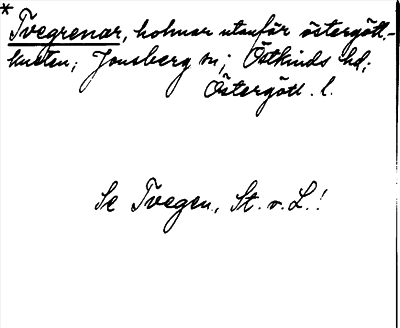 * Tvegrenar, holmar utanför östergötl.-
kusten; Jonsberg sn; Östkinds hd;
Östergötl. l.
Se Tvegen, St. o. L.!